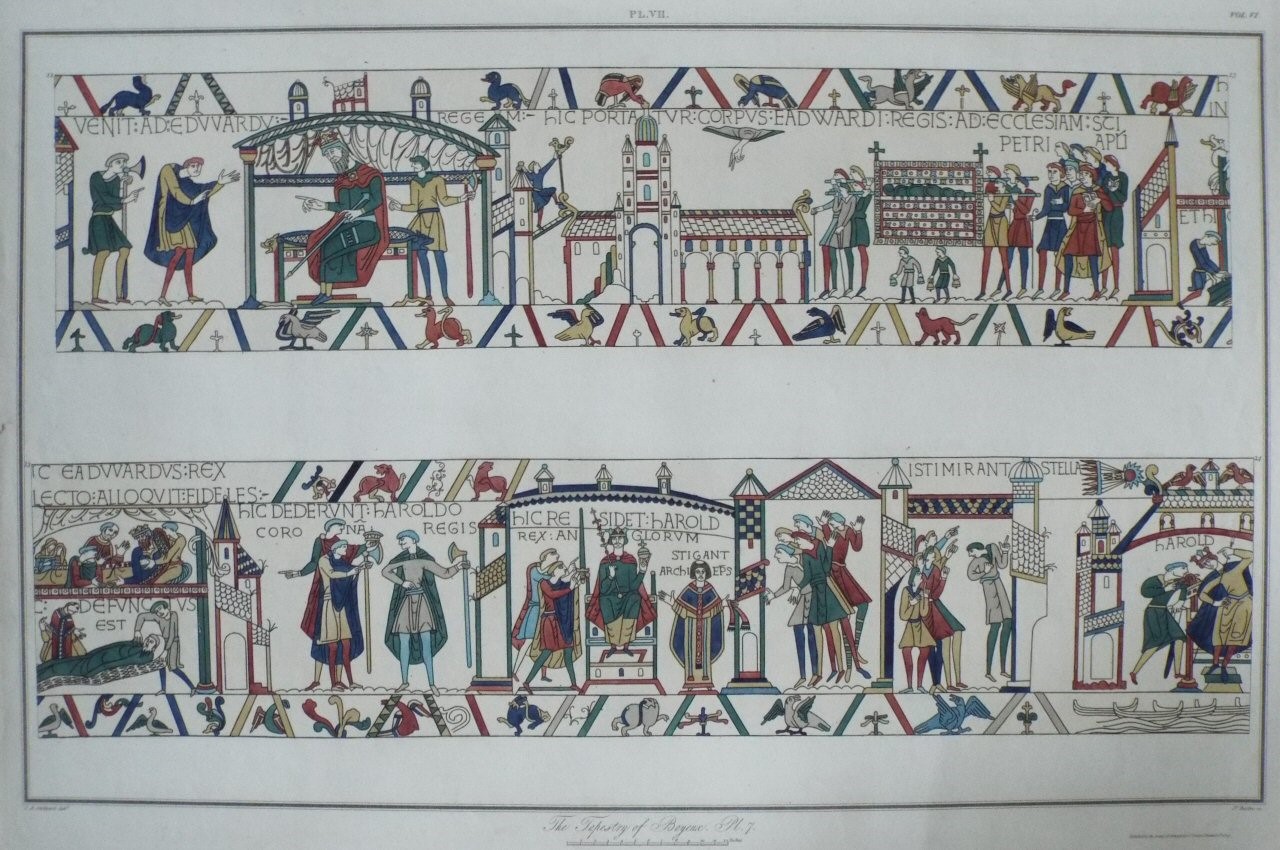 PL.VII.
VOL. VI
VENIT: AD: EDVVARDV:- REGEM:- hIC PORTATVR: CORPVS: EADWARDI: REGIS: AD: ECCLESIAM: SCI
PETRI APLI
h
IN
ET hIC
IC EADVVARDVS: REX
LECTO: ALLOQVIT: FIDELES:-
DEFVNCTVS
EST
hIC DEDERVNT: hAROLDO
CORONA REGIS
hIC RESIDET: hAROLD
REX: ANGLORVM
STIGANT
ARChIEPS
ISTI MIRANT STELLA
hAROLD
The Tapestry of Bayeux. Pl. 7.